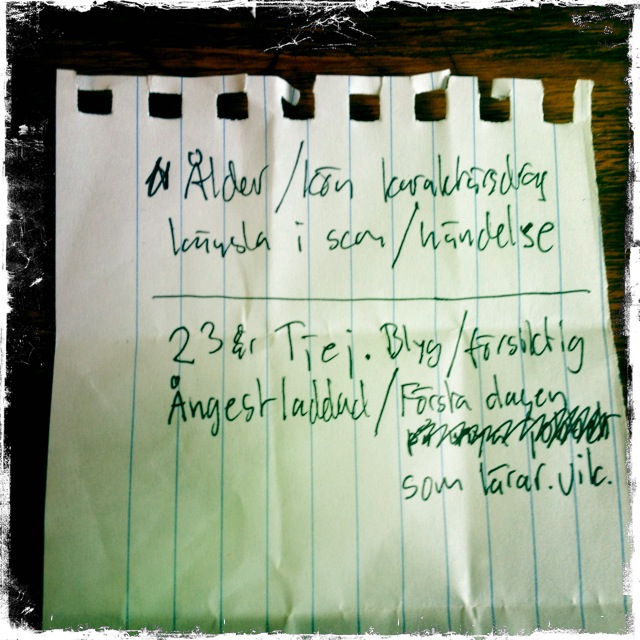 Ålder / kön karaktärsdrag
känsla i scen / händelse
23 år Tjej. Blyg / försiktig
Ångestladdad / Första dagen
som lärar.vik.